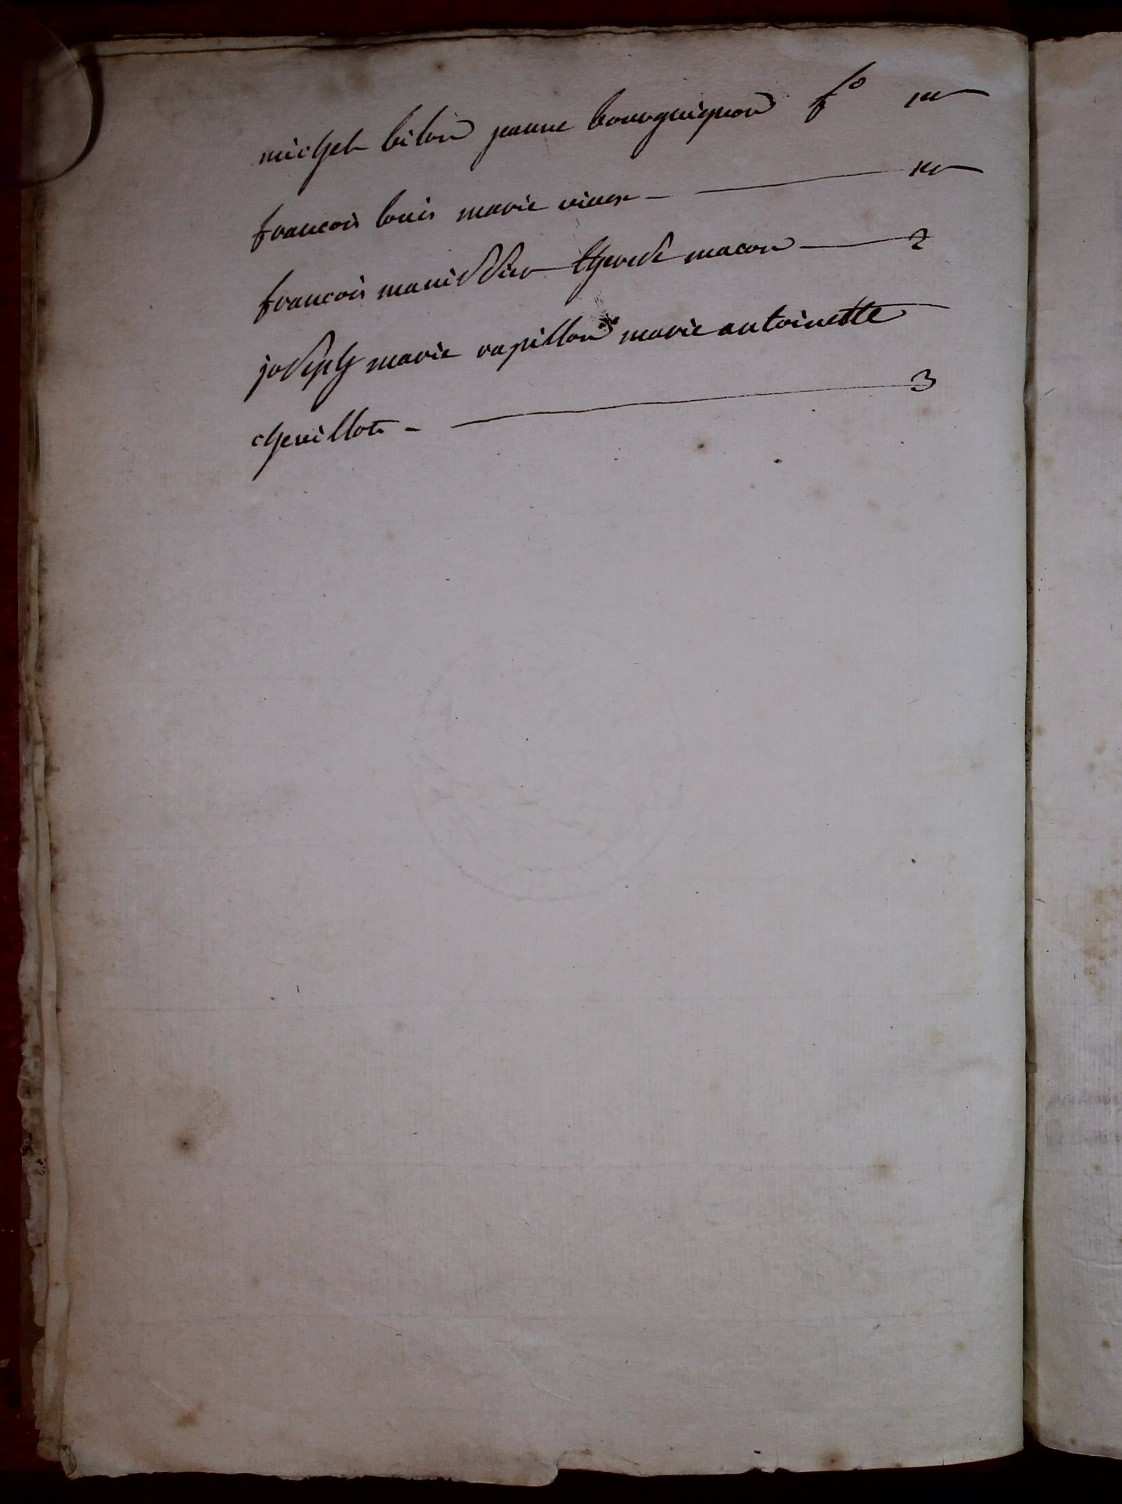 michel bilon jeanne bourguignon fo 1er
francois louis marie viver - 1er
francois manissier therese macon - 2
joseph marie rapillon marie antoinette
chevillot - 3